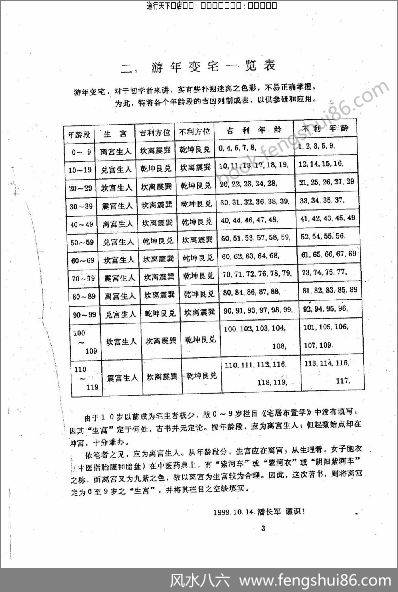 二、游年变宅一览表
游年变宅，对于初学者来讲，实有些扑朔迷离之色彩，不易正确掌握。
为此，特将各个年龄段的吉凶列制成表，以供参研和应用。
年龄段 生宫 吉利方位 不利方位 吉利年龄 不利年龄
0～9 离宫生人 坎离震巽 乾坤艮兑 0,4,6,7,8, 1,2,3,5,9,
10～19 兑宫生人 坎离震巽 乾坤艮兑 10,11,13,17,18,19, 12,14,15,16,
20～29 坎宫生人 坎离震巽 乾坤艮兑 20,22,23,24,28, 21,25,26,27,29
30～39 震宫生人 坎离震巽 乾坤艮兑 30,31,32,36,38,39, 33,34,35,37,
40～49 离宫生人 坎离震巽 乾坤艮兑 40,44,46,47,48, 41,42,43,45,49
50～59 兑宫生人 坎离震巽 乾坤艮兑 50,51,53,57,58,59, 52,54,55,56,
60～69 坎宫生人 坎离震巽 乾坤艮兑 60,62,63,64,68, 61,65,66,67,69
70～79 震宫生人 坎离震巽 乾坤艮兑 70,71,72,76,78,79, 73,74,75,77,
80～89 离宫生人 坎离震巽 乾坤艮兑 80,84,86,87,88, 81,82,83,85,89
90～99 兑宫生人 坎离震巽 乾坤艮兑 90,91,93,97,98,99, 92,94,95,96,
100～109 坎宫生人 坎离震巽 乾坤艮兑 100,102,103,104,108, 101,105,106,107,109,
110～119 震宫生人 坎离震巽 乾坤艮兑 110,111,112,116,118,119, 113,114,115,117,
由于10岁以前成为宅主者极少，故0～9岁栏目《宅居布置学》中没有填写；
因其“生宫”定于何处，古书并无定论。按年龄段，应为离宫生人；但起数始点却在
坤宫，十分难办。
依笔者之见，应为离宫生人。从年龄段分，生宫应在离宫；从生理看，女子胞衣
（中医指胎膜和胎盘）在中医药典上，有“紫河车”或“紫河衣”或“阴阳紫河车”
之称，而离宫又为九紫之色，故以离宫为生宫较为合理。因此，这次著书，则将离宫
定为0至9岁之“生宫”，并将其栏目之空缺填实。
1999.10.14.潘长军 谨识！
3
风水八六 www.fengshui86.com